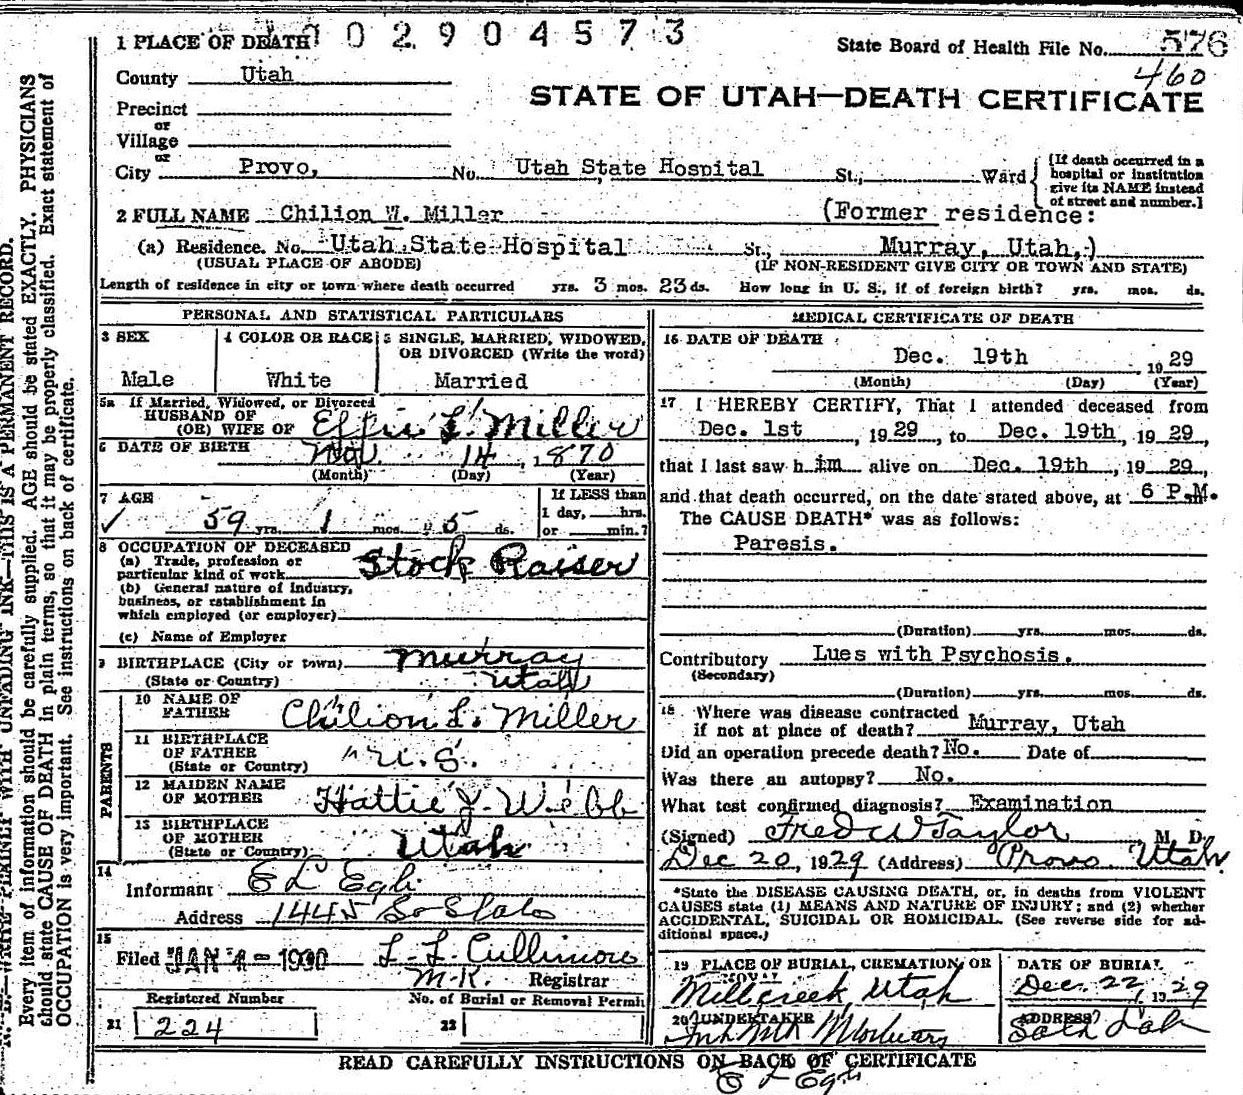 1 PLACE OF DEATH 002904573
State Board of Health File No. 576
460
County Utah
STATE OF UTAH—DEATH CERTIFICATE
Precinct
or
Village
or
City Provo, No. Utah State Hospital St., Ward
[If death occurred in a
hospital or institution
give its NAME instead
of street and number.]
2 FULL NAME Chilion W. Miller (Former residence:
(a) Residence. No. Utah State Hospital St., Murray, Utah,)
(USUAL PLACE OF ABODE) (IF NON-RESIDENT GIVE CITY OR TOWN AND STATE)
Length of residence in city or town where death occurred yrs. 3 mos. 23 ds. How long in U. S., if of foreign birth? yrs. mos. ds.
PERSONAL AND STATISTICAL PARTICULARS
3 SEX
Male
4 COLOR OR RACE
White
5 SINGLE, MARRIED, WIDOWED,
OR DIVORCED (Write the word)
Married
5a If Married, Widowed, or Divorced
HUSBAND OF
(OR) WIFE OF Effie L. Miller
6 DATE OF BIRTH Nov. 14, 1870
(Month) (Day) (Year)
7 AGE
✓ 59 yrs. 1 mos. 5 ds.
If LESS than
1 day, hrs.
or min.?
8 OCCUPATION OF DECEASED
(a) Trade, profession or
particular kind of work Stock Raiser
(b) General nature of industry,
business, or establishment in
which employed (or employer)
(c) Name of Employer
9 BIRTHPLACE (City or town) Murray
(State or Country) Utah
PARENTS
10 NAME OF
FATHER Chilion L. Miller
11 BIRTHPLACE
OF FATHER
(State or Country) U. S.
12 MAIDEN NAME
OF MOTHER Hattie J. Webb
13 BIRTHPLACE
OF MOTHER
(State or Country) Utah
14
Informant E L Egli
Address 1445 So State
15
Filed JAN 4 - 1930 L. L. Cullimore
M.K. Registrar
Registered Number
21 224
No. of Burial or Removal Permit
22
MEDICAL CERTIFICATE OF DEATH
16 DATE OF DEATH
Dec. 19th, 1929
(Month) (Day) (Year)
17 I HEREBY CERTIFY, That I attended deceased from
Dec. 1st, 1929, to Dec. 19th, 1929,
that I last saw him alive on Dec. 19th, 1929,
and that death occurred, on the date stated above, at 6 P.M.
The CAUSE DEATH* was as follows:
Paresis.
(Duration) yrs. mos. ds.
Contributory Lues with Psychosis.
(Secondary)
(Duration) yrs. mos. ds.
18 Where was disease contracted
if not at place of death? Murray, Utah
Did an operation precede death? No. Date of
Was there an autopsy? No.
What test confirmed diagnosis? Examination
(Signed) Fred W Taylor M. D.
Dec 20, 1929 (Address) Provo Utah
*State the DISEASE CAUSING DEATH, or, in deaths from VIOLENT
CAUSES state (1) MEANS AND NATURE OF INJURY; and (2) whether
ACCIDENTAL, SUICIDAL OR HOMICIDAL. (See reverse side for ad-
ditional space.)
19 PLACE OF BURIAL, CREMATION, OR
Millcreek, Utah
DATE OF BURIAL
Dec. 22, 1929
20 UNDERTAKER
ADDRESS
Salt Lake
READ CAREFULLY INSTRUCTIONS ON BACK OF CERTIFICATE
E L Egli
N. B.—WRITE PLAINLY WITH UNFADING INK—THIS IS A PERMANENT RECORD.
Every item of information should be carefully supplied. AGE should be stated EXACTLY. PHYSICIANS
should state CAUSE OF DEATH in plain terms, so that it may be properly classified. Exact statement of
OCCUPATION is very important. See instructions on back of certificate.